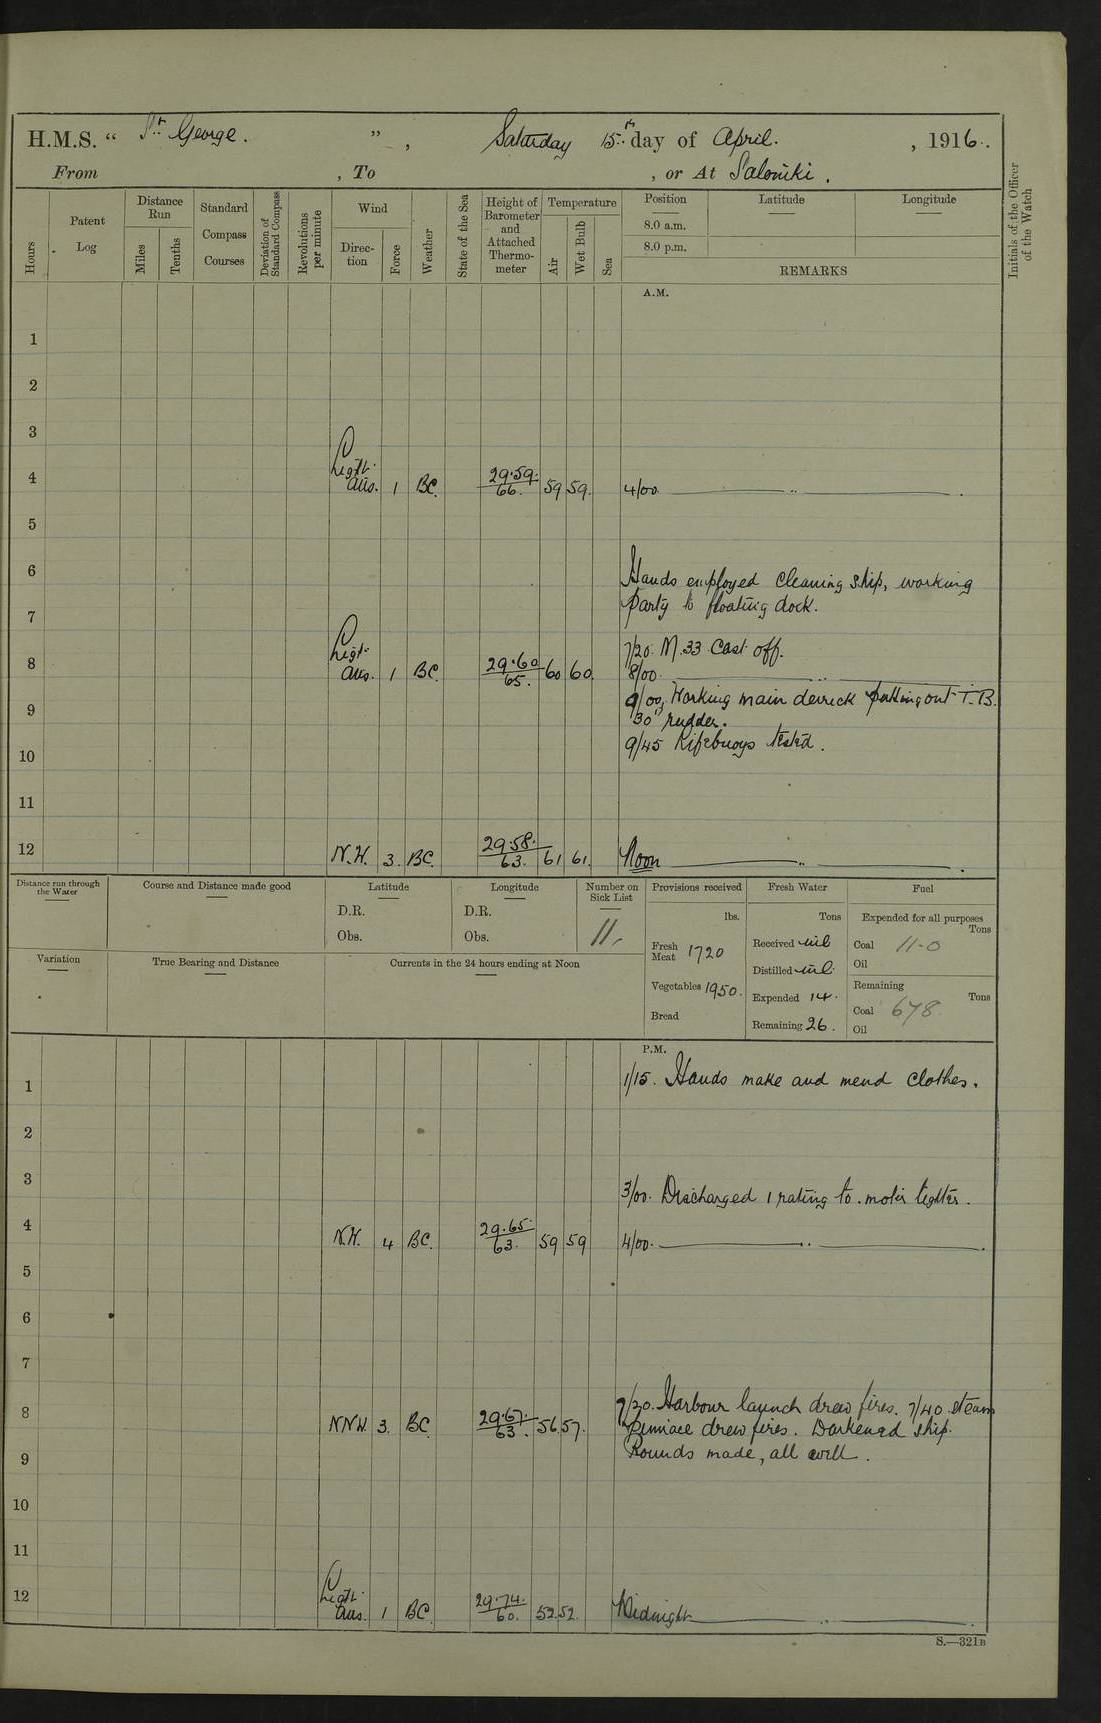 H.M.S. “ St. George. ” , Saturday 15th day of April. , 1916.
From , To , or At Saloniki.
Hours
Patent Log
Distance Run
Miles
Tenths
Standard Compass Courses
Deviation of Standard Compass
Revolutions per minute
Wind
Direction
Force
Weather
State of the Sea
Height of Barometer and Attached Thermometer
Temperature
Air
Wet Bulb
Sea
Position Latitude Longitude
8.0 a.m.
8.0 p.m.
REMARKS
Initials of the Officer of the Watch
A.M.
1
2
3
4 Light airs. 1 BC. 29.59. 66. 59 59. 4/00
5
6 Hands employed cleaning ship, working
party to floating dock.
7
7/20. M.33 Cast off.
8 Light airs. 1 BC. 29.60 65. 60 60. 8/00.
9/00, Working main derrick putting out T.B.
9 "30" rudder.
9/45 Lifebuoys tested.
10
11
12 N.W. 3. BC. 29.58. 63. 61 61. Noon
Distance run through the Water
Course and Distance made good
Latitude
D.R.
Obs.
Longitude
D.R.
Obs.
Number on Sick List
11.
Provisions received
lbs.
Fresh Meat 1720
Vegetables 1950.
Bread
Fresh Water
Tons
Received nil
Distilled nil.
Expended 14.
Remaining 26.
Fuel
Expended for all purposes
Tons
Coal 11-0
Oil
Remaining
Tons
Coal 678
Oil
Variation
True Bearing and Distance
Currents in the 24 hours ending at Noon
P.M.
1 1/15. Hands make and mend clothes.
2
3 3/00. Discharged 1 rating to motor lighter.
4 N.W. 4 BC. 29.65. 63. 59 59 4/00.
5
6
7
8 NNW. 3. BC. 29.67. 63. 56 57. 7/20. Harbour launch drew fires. 7/40 steam
Pinnace drew fires. Darkened ship.
9 Rounds made, all well.
10
11
12 Light airs. 1 BC. 29.74. 60. 52. 52. Midnight
S.—321B